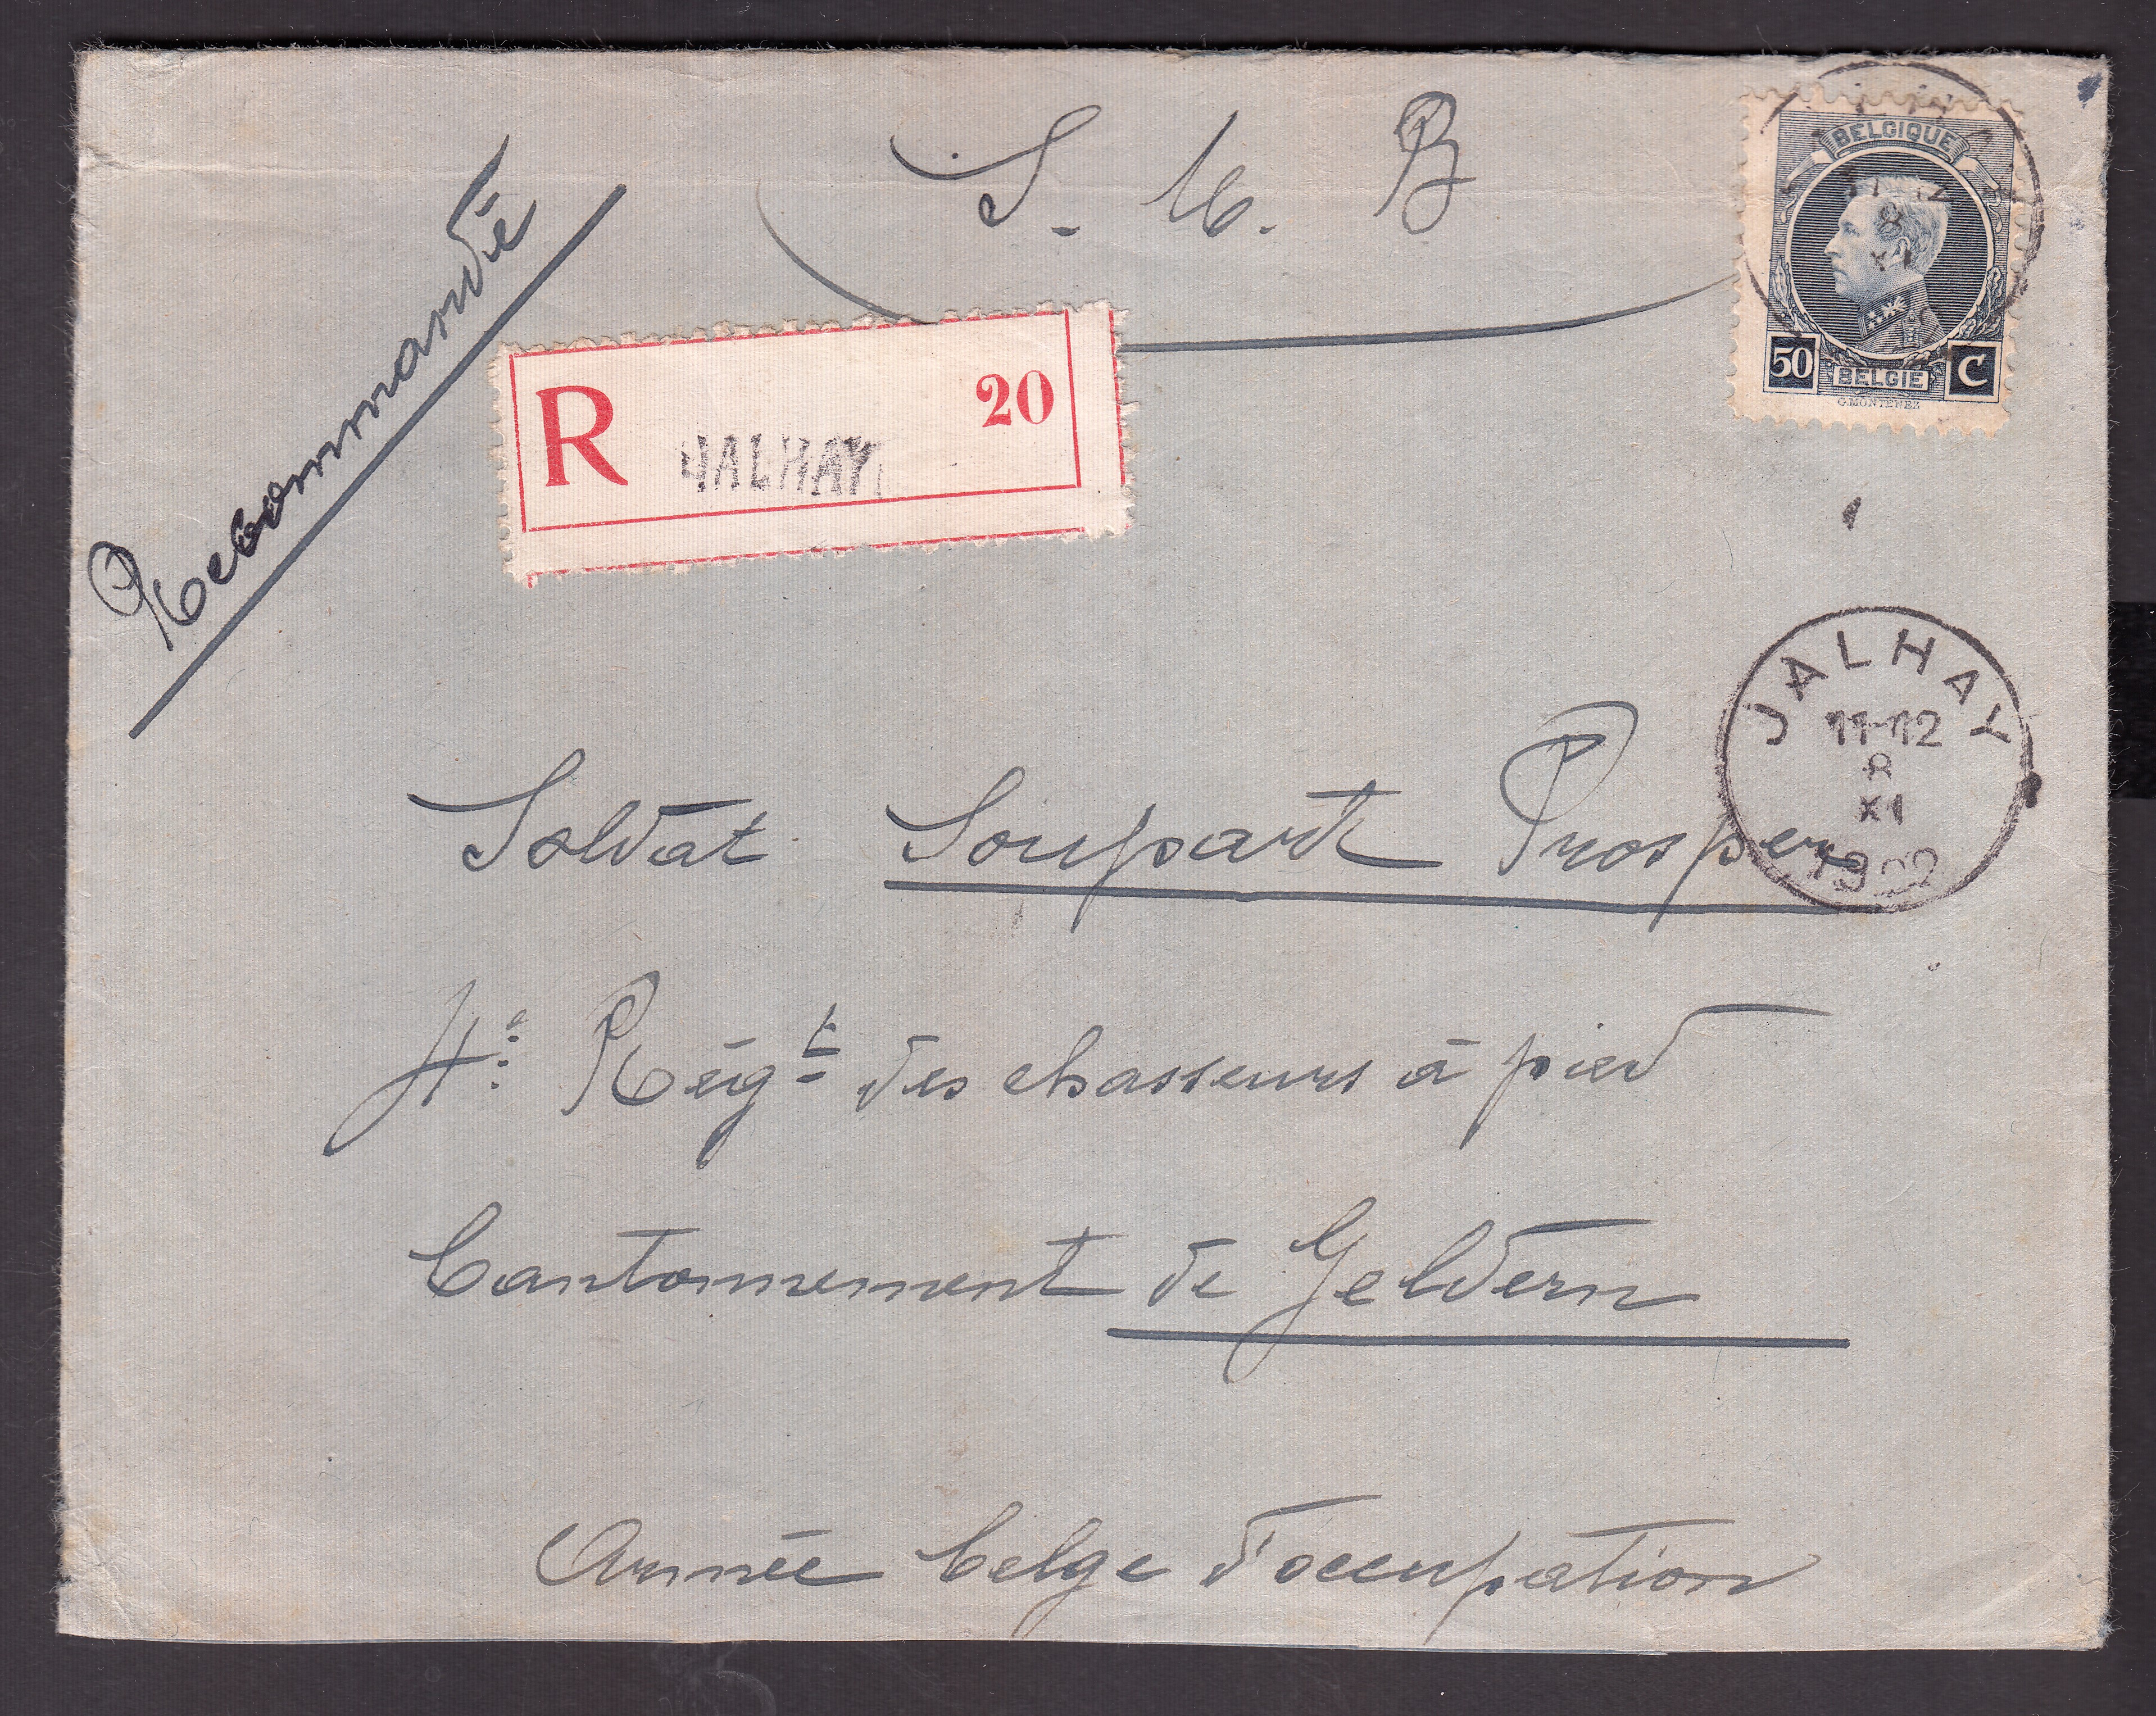 S. M. B
Recommandé
BELGIQUE
50 C
BELGIE
G.MONTENEZ
R 20
JALHAY
JALHAY
11-12
8
XI
1922
Soldat Soupart Prosper
4e Régt des chasseurs à pied
Cantonnement de Geldern
Armée belge d'occupation